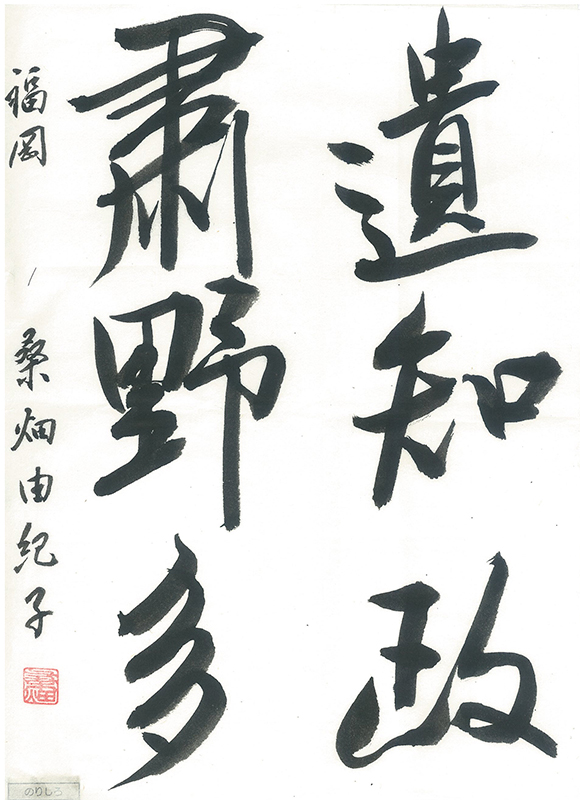 遺知政
肅野多
福岡 桑畑由紀子
のりしろ